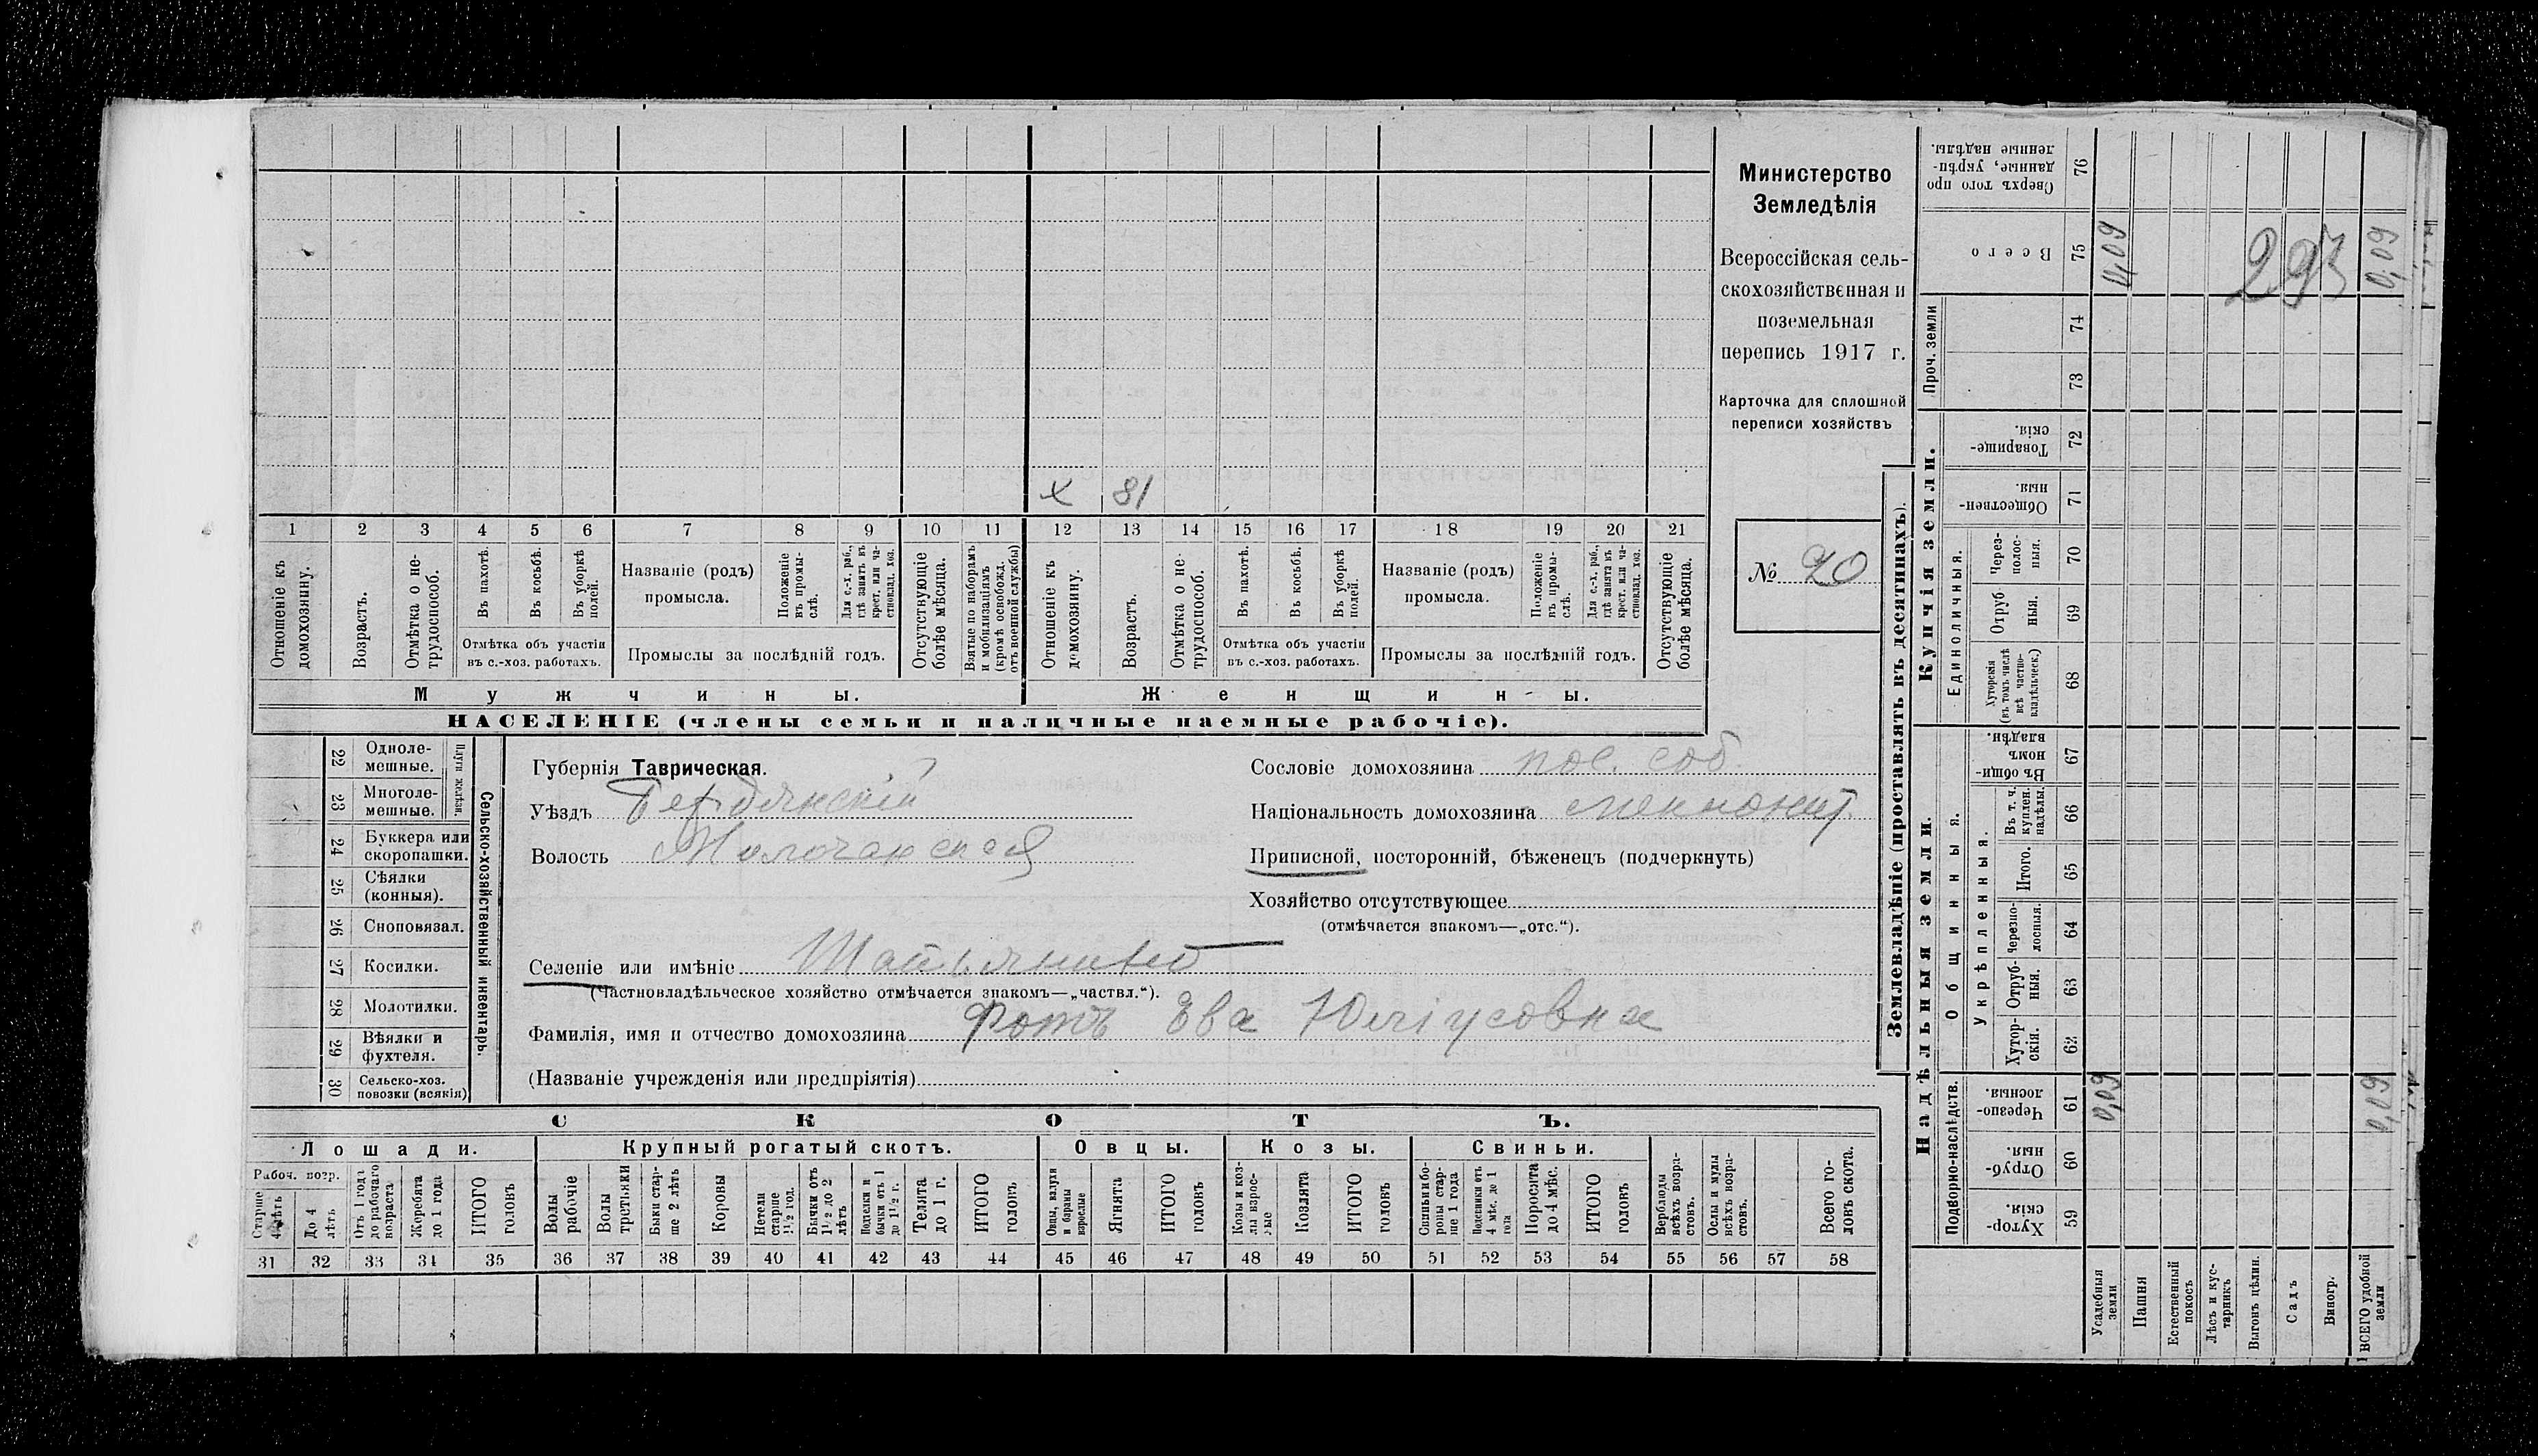 Министерство
Земледѣлія
Всероссійская сель-
скохозяйственная и
поземельная
перепись 1917 г.
Карточка для сплошной
переписи хозяйствъ
№ 20
х 81
1 2 3 4 5 6 7 8 9 10 11 12 13 14 15 16 17 18 19 20 21
Отношеніе къ
домохозяину.
Возрастъ.
Отмѣтка о не-
трудоспособ.
Въ пахотѣ.
Въ косьбѣ.
Въ уборкѣ
полей.
Отмѣтка объ участіи
въ с.-хоз. работахъ.
Названіе (родъ)
промысла.
Положеніе
въ промы-
слѣ.
Для с.-х. раб.,
гдѣ занятъ въ
крест. или ча-
стновлад. хоз.
Промыслы за послѣдній годъ.
Отсутствующіе
болѣе мѣсяца.
Взятые по наборамъ
и мобилизаціямъ
(кромѣ освобожд.
отъ военной службы)
Отношеніе къ
домохозяину.
Возрастъ.
Отмѣтка о не-
трудоспособ.
Въ пахотѣ.
Въ косьбѣ.
Въ уборкѣ
полей.
Отмѣтка объ участіи
въ с.-хоз. работахъ.
Названіе (родъ)
промысла.
Положеніе
въ промы-
слѣ.
Для с.-х. раб.,
гдѣ занята въ
крест. или ча-
стновлад. хоз.
Промыслы за послѣдній годъ.
Отсутствующіе
болѣе мѣсяца.
Мужчины.
Женщины.
НАСЕЛЕНІЕ (члены семьи и наличные наемные рабочіе).
22 Одноле-
мешные.
23 Многоле-
мешные.
Плуги желѣзн.
24 Буккера или
скоропашки.
25 Сѣялки
(конныя).
26 Сноповязал.
27 Косилки.
28 Молотилки.
29 Вѣялки и
фухтеля.
30 Сельско-хоз.
повозки (всякія)
Сельско-хозяйственный инвентарь.
Губернія Таврическая.
Уѣздъ Бердянскій
Волость Молочанская
Сословіе домохозяина пос. соб.
Національность домохозяина менонит.
Приписной, посторонній, бѣженецъ (подчеркнуть)
Хозяйство отсутствующее
(отмѣчается знакомъ—„отс.“).
Селеніе или имѣніе
(Частновладѣльческое хозяйство отмѣчается знакомъ—„частвл.“).
Фамилія, имя и отчество домохозяина Фотъ Ева Юліусовна
(Названіе учрежденія или предпріятія)
СКОТЪ.
Лошади.
Крупный рогатый скотъ.
Овцы.
Козы.
Свиньи.
Рабоч. возр.
Старше
4 лѣтъ
До 4
лѣтъ
Отъ 1 года
до рабочаго
возраста
Жеребята
до 1 года
ИТОГО
головъ
Волы
рабочіе
Волы
третьяки
Быки стар-
ше 2 лѣтъ
Коровы
Нетели
старше
1½ год.
Бычки отъ
1½ до 2
лѣтъ
Подтелки и
бычки отъ 1
до 1½ г.
Телята
до 1 г.
ИТОГО
головъ
Овцы, валухи
и бараны
взрослые
Ягнята
ИТОГО
головъ
Козы и коз-
лы взрос-
лые
Козлята
ИТОГО
головъ
Свиньи и бо-
ровы стар-
ше 1 года
Подсвинки отъ
4 мѣс. до 1
года
Поросята
до 4 мѣс.
ИТОГО
головъ
Верблюды
всѣхъ возра-
стовъ.
Ослы и мулы
всѣхъ возра-
стовъ.
Всего го-
ловъ скота.
31 32 33 34 35 36 37 38 39 40 41 42 43 44 45 46 47 48 49 50 51 52 53 54 55 56 57 58
Землевладѣніе (проставлять въ десятинахъ).
Купчія земли.
Надѣльныя земли.
Проч. земли
Единоличныя.
Общинныя.
Укрѣпленныя.
Подворно-наслѣдств.
Сверхъ того про
данные, укрѣп-
ленные надѣлы.
76
Всего
75
74
73
Товарище-
скія.
72
Обществен-
ныя.
71
Через-
полос-
ныя.
70
Отруб-
ныя.
69
Хуторскія
(въ томъ числѣ
всѣ частно-
владѣльческ.)
68
Въ общи-
номъ
владѣн.
67
Въ т. ч.
куплен.
надѣлы.
66
Итого.
65
Черезпо-
лосныя.
64
Отруб-
ныя.
63
Хутор-
скія.
62
Черезпо-
лосныя.
61
Отруб-
ныя.
60
Хутор-
скія.
59
0,09
293
0,09
0,09
0,09
Усадебныя
земли
Пашня
Естественный
покосъ
Лѣсъ и кус-
тарникъ
Выгонъ цѣлин.
Садъ
Виногр.
ВСЕГО удобной
земли